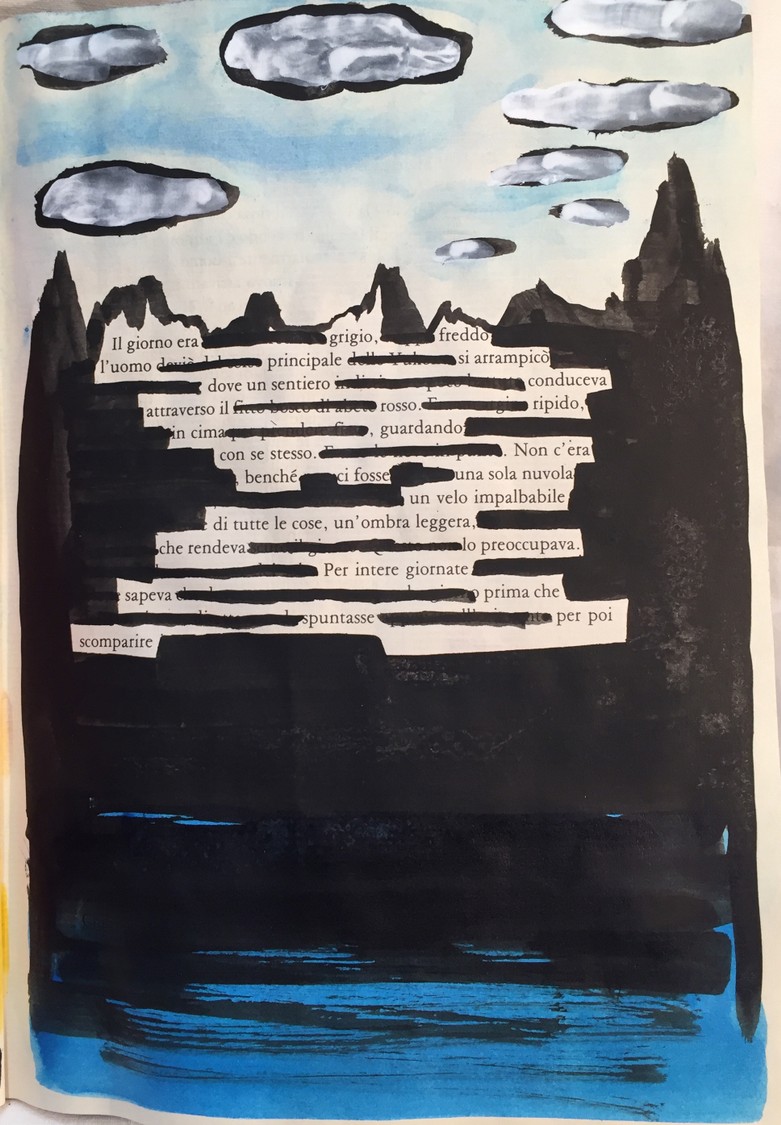 Il giorno era grigio, freddo
l'uomo principale si arrampicò
dove un sentiero conduceva
attraverso il fitto bosco di abete rosso. ripido,
in cima , guardando
con se stesso. . Non c'era
, benché ci fosse una sola nuvola
un velo impalbabile
di tutte le cose, un'ombra leggera,
che rendeva lo preoccupava.
Per intere giornate
sapeva prima che
spuntasse per poi
scomparire